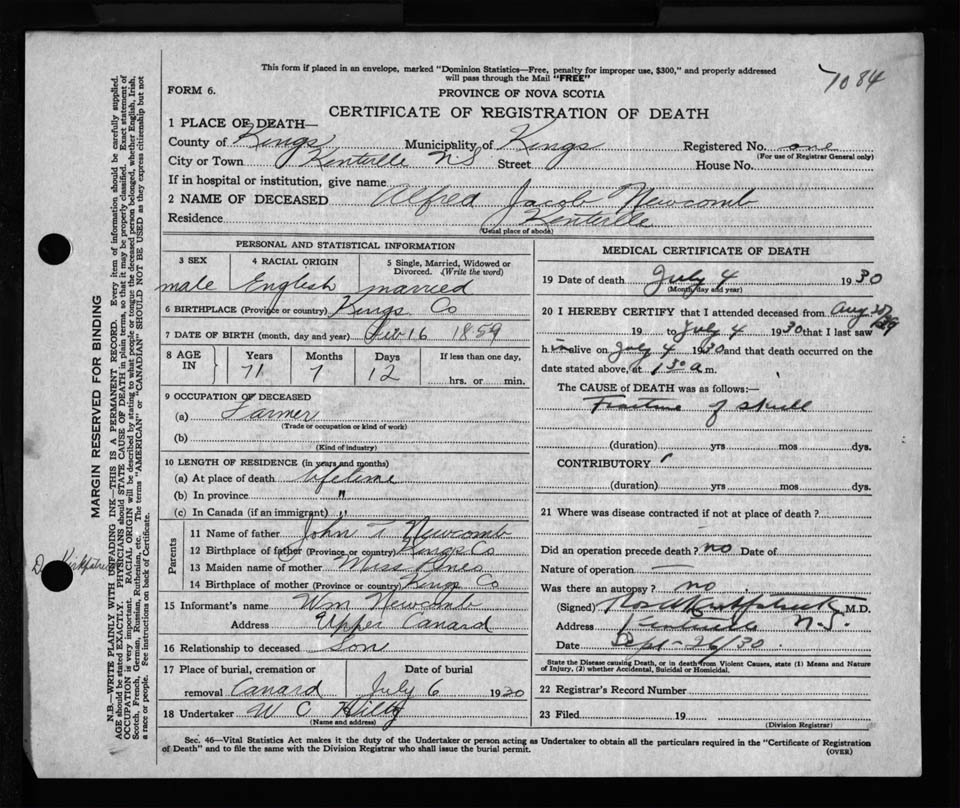 This form if placed in an envelope, marked "Dominion Statistics—Free, penalty for improper use, $300," and properly addressed
will pass through the Mail "FREE"
7084
FORM 6.
PROVINCE OF NOVA SCOTIA
CERTIFICATE OF REGISTRATION OF DEATH
1 PLACE OF DEATH—
County of Kings Municipality of Kings Registered No. one
(For use of Registrar General only)
City or Town Kentville N.S Street House No.
If in hospital or institution, give name
2 NAME OF DECEASED Alfred Jacob Newcomb
Residence Kentville
(Usual place of abode)
PERSONAL AND STATISTICAL INFORMATION
3 SEX 4 RACIAL ORIGIN 5 Single, Married, Widowed or
Divorced. (Write the word)
male English married
6 BIRTHPLACE (Province or country) Kings Co
7 DATE OF BIRTH (month, day and year) 16 1859
8 AGE IN Years Months Days If less than one day,
71 7 12 hrs. or min.
9 OCCUPATION OF DECEASED
(a) Farmer
(Trade or occupation or kind of work)
(b)
(Kind of industry)
10 LENGTH OF RESIDENCE (in years and months)
(a) At place of death lifetime
(b) In province "
(c) In Canada (if an immigrant) "
Parents
11 Name of father John T Newcomb
12 Birthplace of father (Province or country) Kings Co
13 Maiden name of mother Miss
14 Birthplace of mother (Province or country) Kings Co
15 Informant's name Wm Newcomb
Address Upper Canard
16 Relationship to deceased Son
17 Place of burial, cremation or Date of burial
removal Canard July 6 1930
18 Undertaker W C
(Name and address)
MEDICAL CERTIFICATE OF DEATH
19 Date of death July 4 1930
(Month, day and year)
20 I HEREBY CERTIFY that I attended deceased from Aug
19 to July 4 1930 that I last saw
h im alive on July 4 1930 and that death occurred on
date stated above, at 1 30 a.m.
The CAUSE of DEATH was as follows:—
Fracture of skull
(duration) yrs mos dys.
CONTRIBUTORY
(duration) yrs mos dys.
21 Where was disease contracted if not at place of death?
Did an operation precede death? no Date of
Nature of operation
Was there an autopsy? no
(Signed) M.D.
Address Kentville N.S.
Date Sept 26/30
State the Disease causing Death, or in death from Violent Causes, state (1) Means and Nature
of Injury, (2) whether Accidental, Suicidal or Homicidal.
22 Registrar's Record Number
23 Filed 19
(Division Registrar)
Sec. 46—Vital Statistics Act makes it the duty of the Undertaker or person acting as Undertaker to obtain all the particulars required in the "Certificate of Registration
of Death" and to file the same with the Division Registrar who shall issue the burial permit.
(OVER)
MARGIN RESERVED FOR BINDING
N.B.—WRITE PLAINLY WITH UNFADING INK—THIS IS A PERMANENT RECORD. Every item of information should be carefully supplied.
AGE should be stated EXACTLY. PHYSICIANS should STATE CAUSE OF DEATH in plain terms, so that it may be properly classified. Exact statement of
OCCUPATION is very important. RACIAL ORIGIN will be described by stating to what people or tongue the deceased person belonged, whether English, Irish,
Scotch, French, German, Russian, Ruthenian, etc. The terms "AMERICAN" or "CANADIAN" SHOULD NOT BE USED as they express citizenship but not
a race or people. See instructions on back of Certificate.